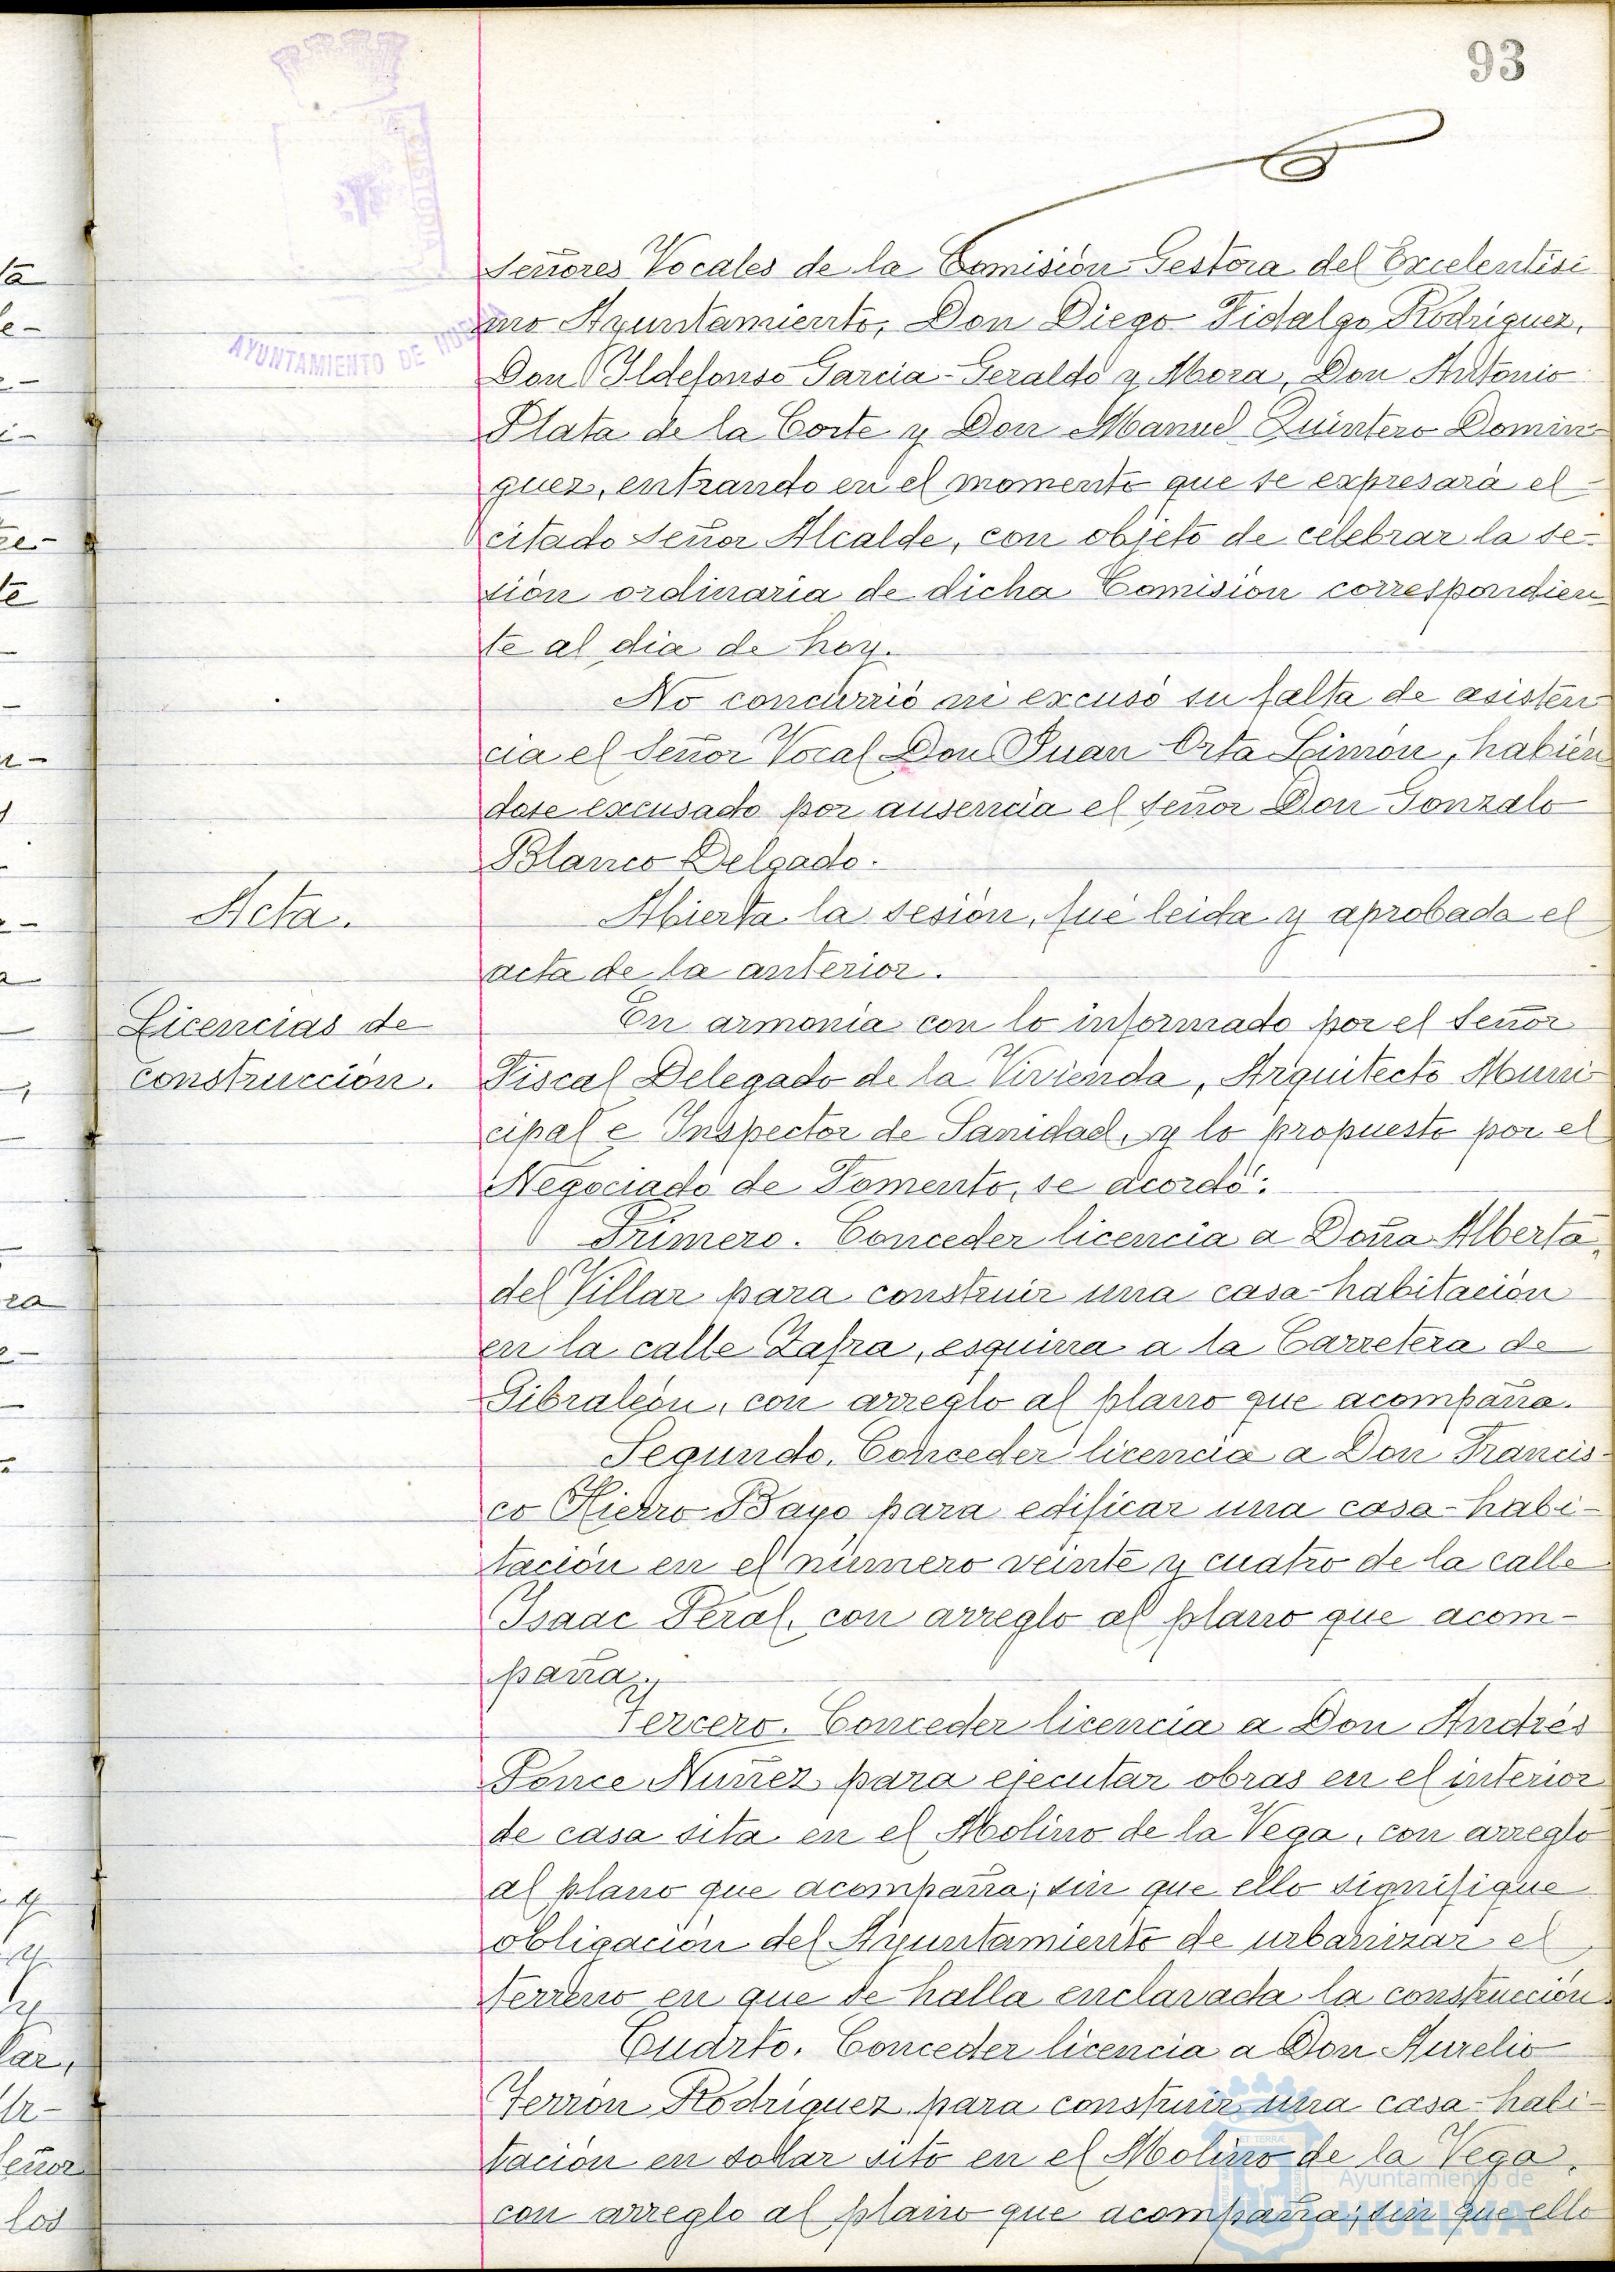 93
AYUNTAMIENTO DE HUELVA
CUSTODIA
señores Vocales de la Comisión Gestora del Excelentisi
mo Ayuntamiento, Don Diego Fidalgo Rodriguez,
Don Ildefonso Garcia-Geraldo y Mora, Don Antonio
Plata de la Corte y Don Manuel Quintero Domin-
guez, entrando en el momento que se expresará el
citado señor Alcalde, con objeto de celebrar la se-
sión ordinaria de dicha Comisión correspondien
te al dia de hoy.
No concurrió ni excusó su falta de asisten
cia el señor Vocal Don Juan Orta Limón, habién
dose excusado por ausencia el señor Don Gonzalo
Blanco Delgado.
Acta.
Abierta la sesión, fué leida y aprobada el
acta de la anterior.
Licencias de
construcción.
En armonía con lo informado por el señor
Fiscal Delegado de la Vivienda, Arquitecto Muni
cipal e Inspector de Sanidad, y lo propuesto por el
Negociado de Fomento, se acordó:
Primero. Conceder licencia a Doña Alberta
del Villar para construir una casa-habitación
en la calle Zafra, esquina a la Carretera de
Gibraleón, con arreglo al plano que acompaña.
Segundo. Conceder licencia a Don Francis-
co Hierro Bayo para edificar una casa-habi-
tación en el número veinte y cuatro de la calle
Isaac Peral, con arreglo al plano que acom-
paña.
Tercero. Conceder licencia a Don Andrés
Ponce Nuñez para ejecutar obras en el interior
de casa sita en el Molino de la Vega, con arreglo
al plano que acompaña; sin que ello signifique
obligación del Ayuntamiento de urbanizar el
terreno en que se halla enclavada la construcción.
Cuarto. Conceder licencia a Don Aurelio
Ferrón Rodríguez para construir una casa-habi-
tación en solar sito en el Molino de la Vega,
con arreglo al plano que acompaña; sin que ello
Ayuntamiento de
HUELVA